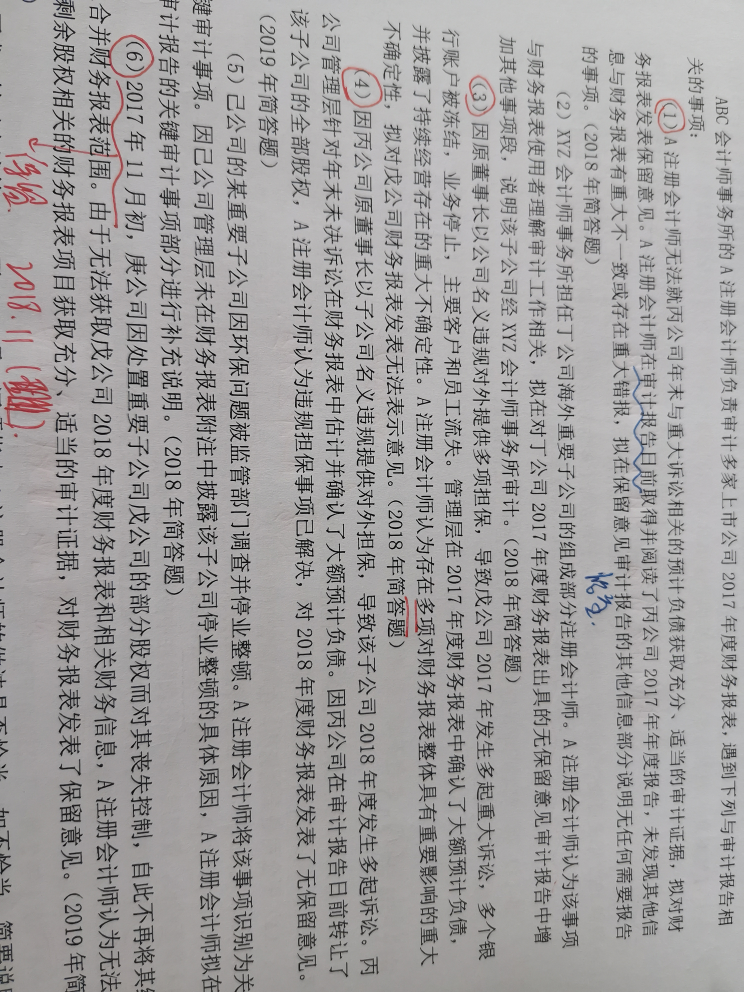 ABC 会计师事务所的 A 注册会计师负责审计多家上市公司 2017 年度财务报表，遇到下列与审计报告相
关的事项：
（1）A 注册会计师无法就丙公司年末与重大诉讼相关的预计负债获取充分、适当的审计证据，拟对财
务报表发表保留意见。A 注册会计师在审计报告日前取得并阅读了丙公司 2017 年年度报告，未发现其他信
息与财务报表有重大不一致或存在重大错报，拟在保留意见审计报告的其他信息部分说明无任何需要报告
的事项。（2018 年简答题）
（2）XYZ 会计师事务所担任丁公司海外重要子公司的组成部分注册会计师。A 注册会计师认为该事项
与财务报表使用者理解审计工作相关，拟在对丁公司 2017 年度财务报表出具的无保留意见审计报告中增
加其他事项段，说明该子公司经 XYZ 会计师事务所审计。（2018 年简答题）
（3）因原董事长以公司名义违规对外提供多项担保，导致戊公司 2017 年发生多起重大诉讼，多个银
行账户被冻结，业务停止，主要客户和员工流失。管理层在 2017 年度财务报表中确认了大额预计负债，
并披露了持续经营存在的重大不确定性。A 注册会计师认为存在多项对财务报表整体具有重要影响的重大
不确定性，拟对戊公司财务报表发表无法表示意见。（2018 年简答题）
（4）因丙公司原董事长以子公司名义违规提供对外担保，导致该子公司 2018 年度发生多起诉讼。丙
公司管理层针对年末未决诉讼在财务报表中估计并确认了大额预计负债。因丙公司在审计报告日前转让了
该子公司的全部股权，A 注册会计师认为违规担保事项已解决，对 2018 年度财务报表发表了无保留意见。
（2019 年简答题）
（5）己公司的某重要子公司因环保问题被监管部门调查并停业整顿。A 注册会计师将该事项识别为关
键审计事项。因己公司管理层未在财务报表附注中披露该子公司停业整顿的具体原因，A 注册会计师拟在
审计报告的关键审计事项部分进行补充说明。（2018 年简答题）
（6）2017 年 11 月初，庚公司因处置重要子公司戊公司的部分股权而对其丧失控制，自此不再将其
合并财务报表范围。由于无法获取戊公司 2018 年度财务报表和相关财务信息，A 注册会计师认为无法
剩余股权相关的财务报表项目获取充分、适当的审计证据，对财务报表发表了保留意见。（2019 年简
2018.11